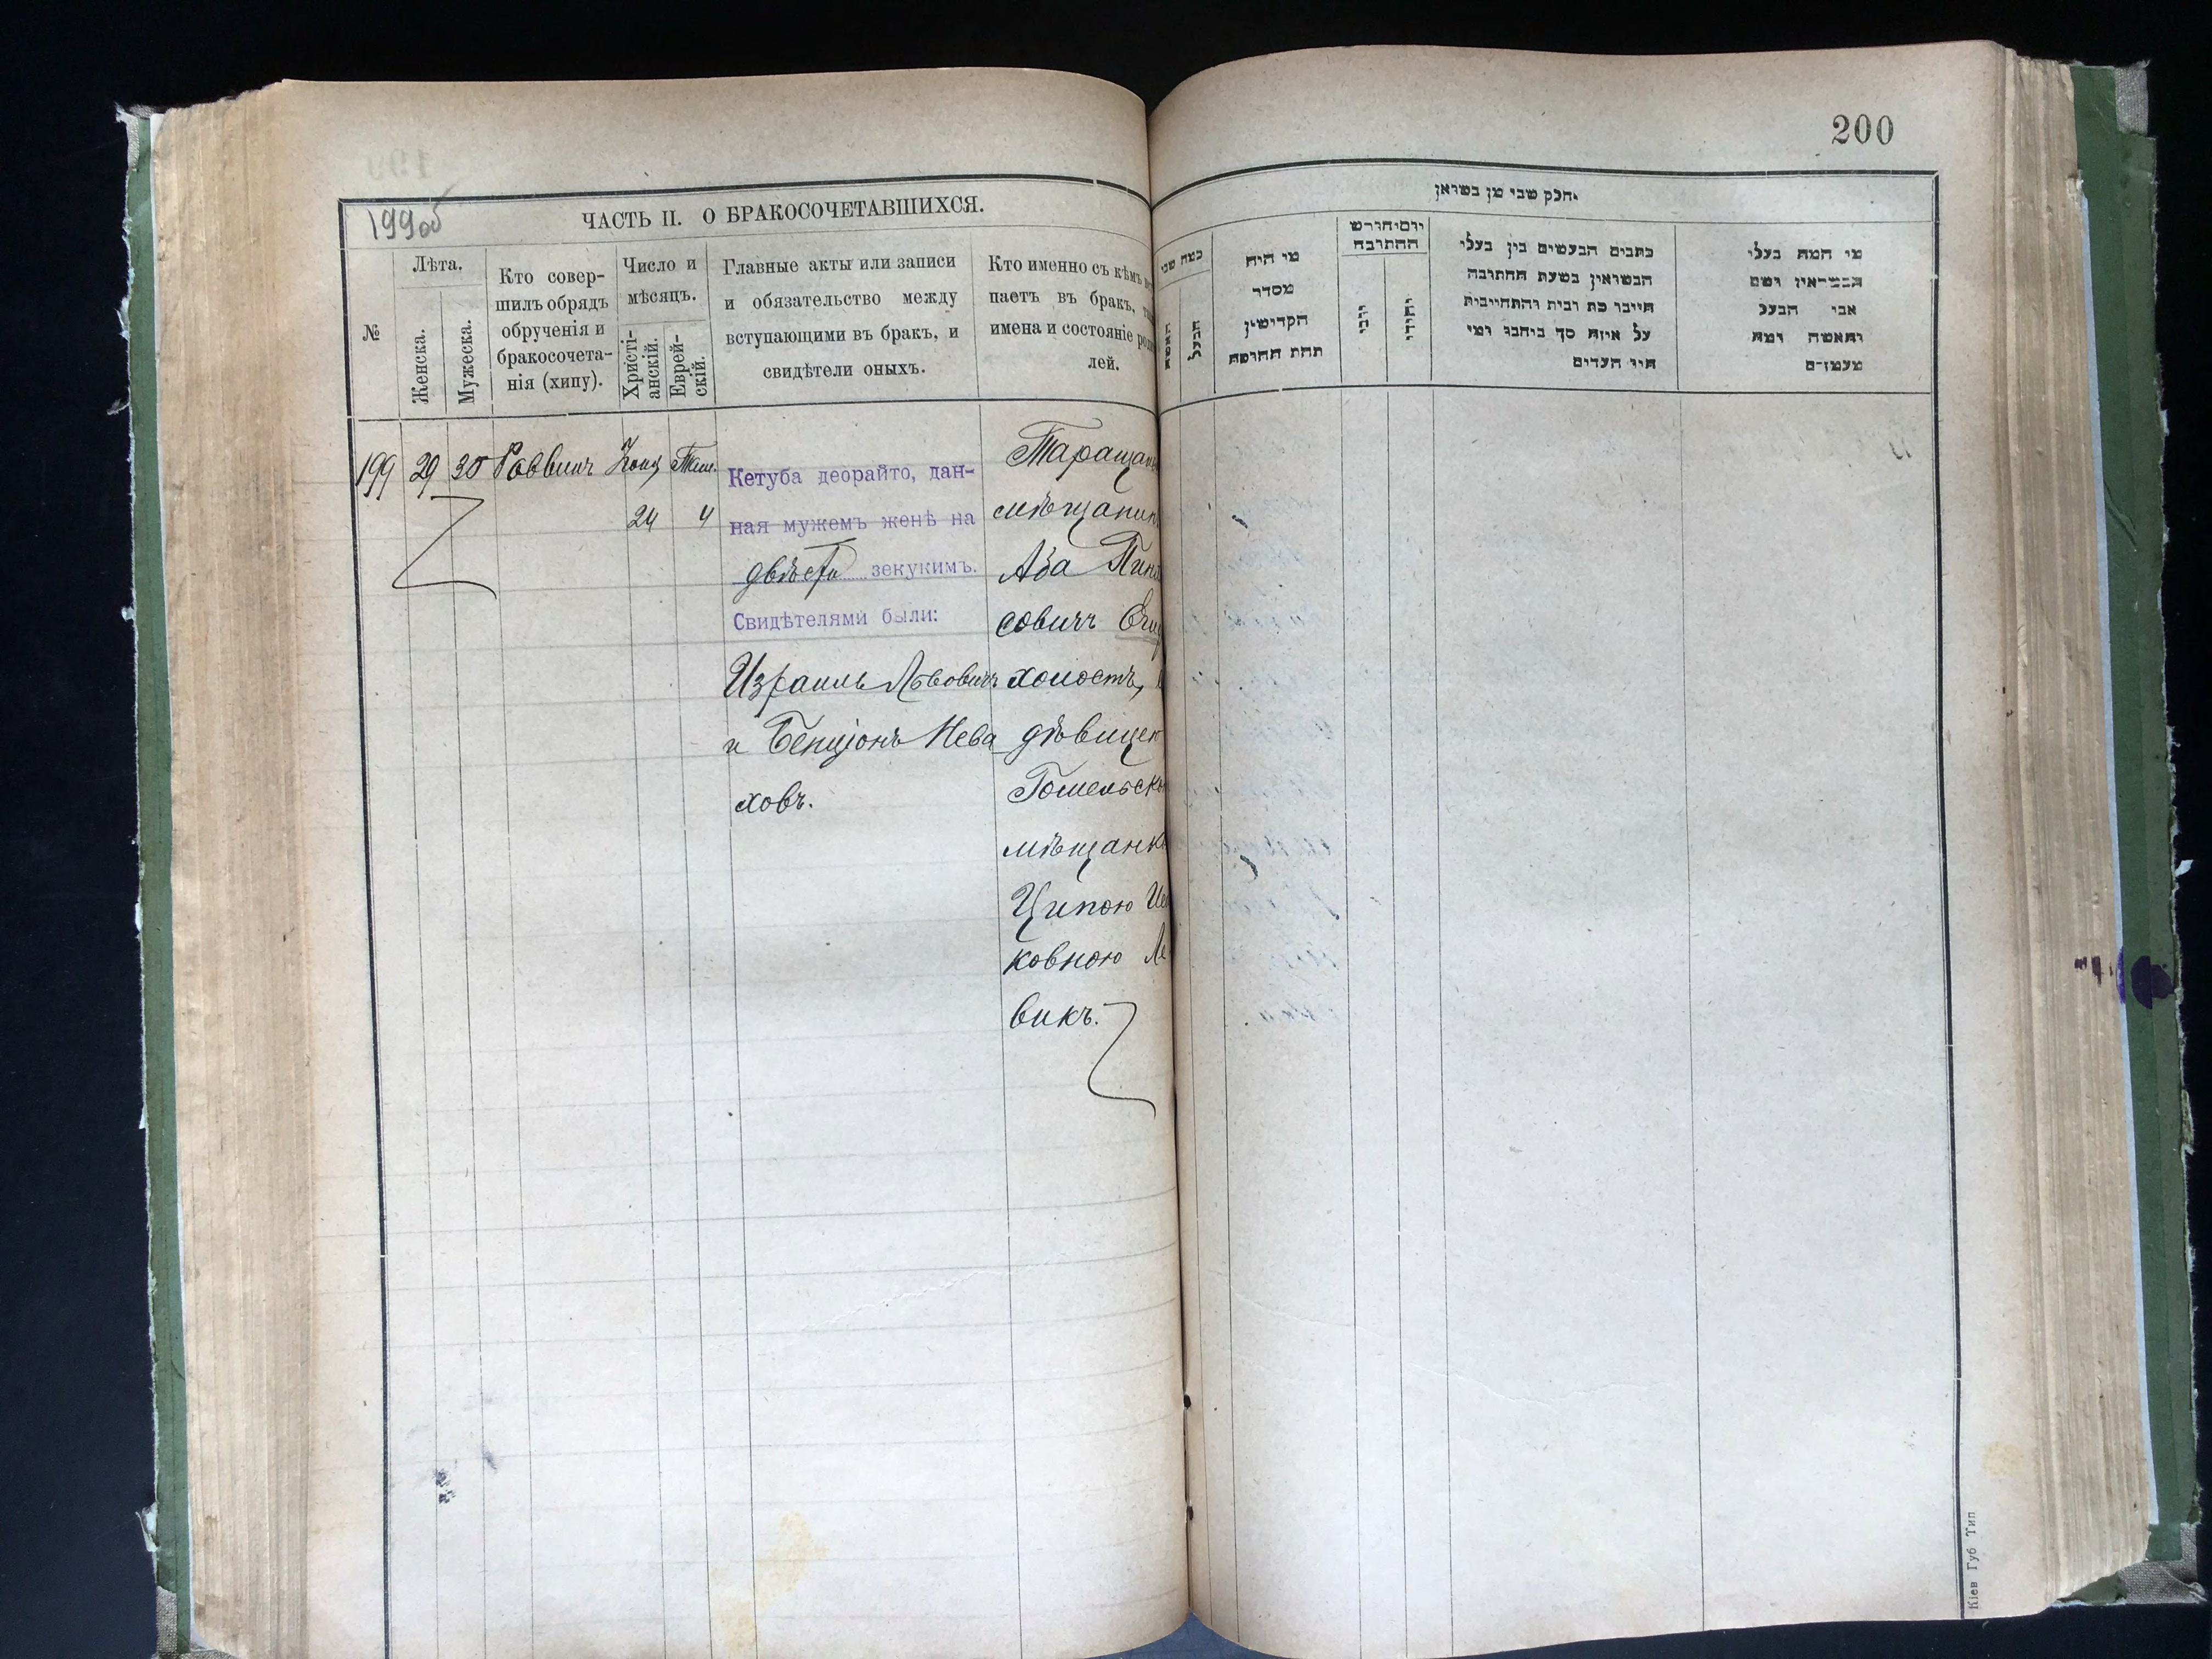 200
199об
ЧАСТЬ II. О БРАКОСОЧЕТАВШИХСЯ.
№
Лѣта.
Женска.
Мужеска.
Кто совер-
шилъ обрядъ
обрученія и
бракосочета-
нія (хипу).
Число и
мѣсяцъ.
Христі-
анскій.
Еврей-
скій.
Главные акты или записи
и обязательство между
вступающими въ бракъ, и
свидѣтели оныхъ.
Кто именно съ кѣмъ
паетъ въ бракъ,
имена и состояніе
лей.
199 29 30 Раввинъ
24 4
Кетуба деорайто, дан-
ная мужемъ женѣ на
двѣсти зекукимъ.
Свидѣтелями были:
Израиль Львовичъ
и Бенціонъ Нева
ховъ.
Таращан
мѣщанин
Аба Пин
совичъ
холостъ,
дѣвицею
Гомельско
мѣщанк
Ципою
ковною Ле
викъ.
חלק שני מן
כמה שני
האשה
הבעל
מי היה
מסדר
הקדושין
תחת החופה
יום וחודש
החתונה
יוני
יהודי
כתבים הנעשים בין בעלי
הנשואין בשעת החתונה
על איזה סך ניתנו ומי
היו העדים
מי המה בעלי
הנשואין ושם
אבי הבעל
והאשה ומה
Кіев Губ Тип